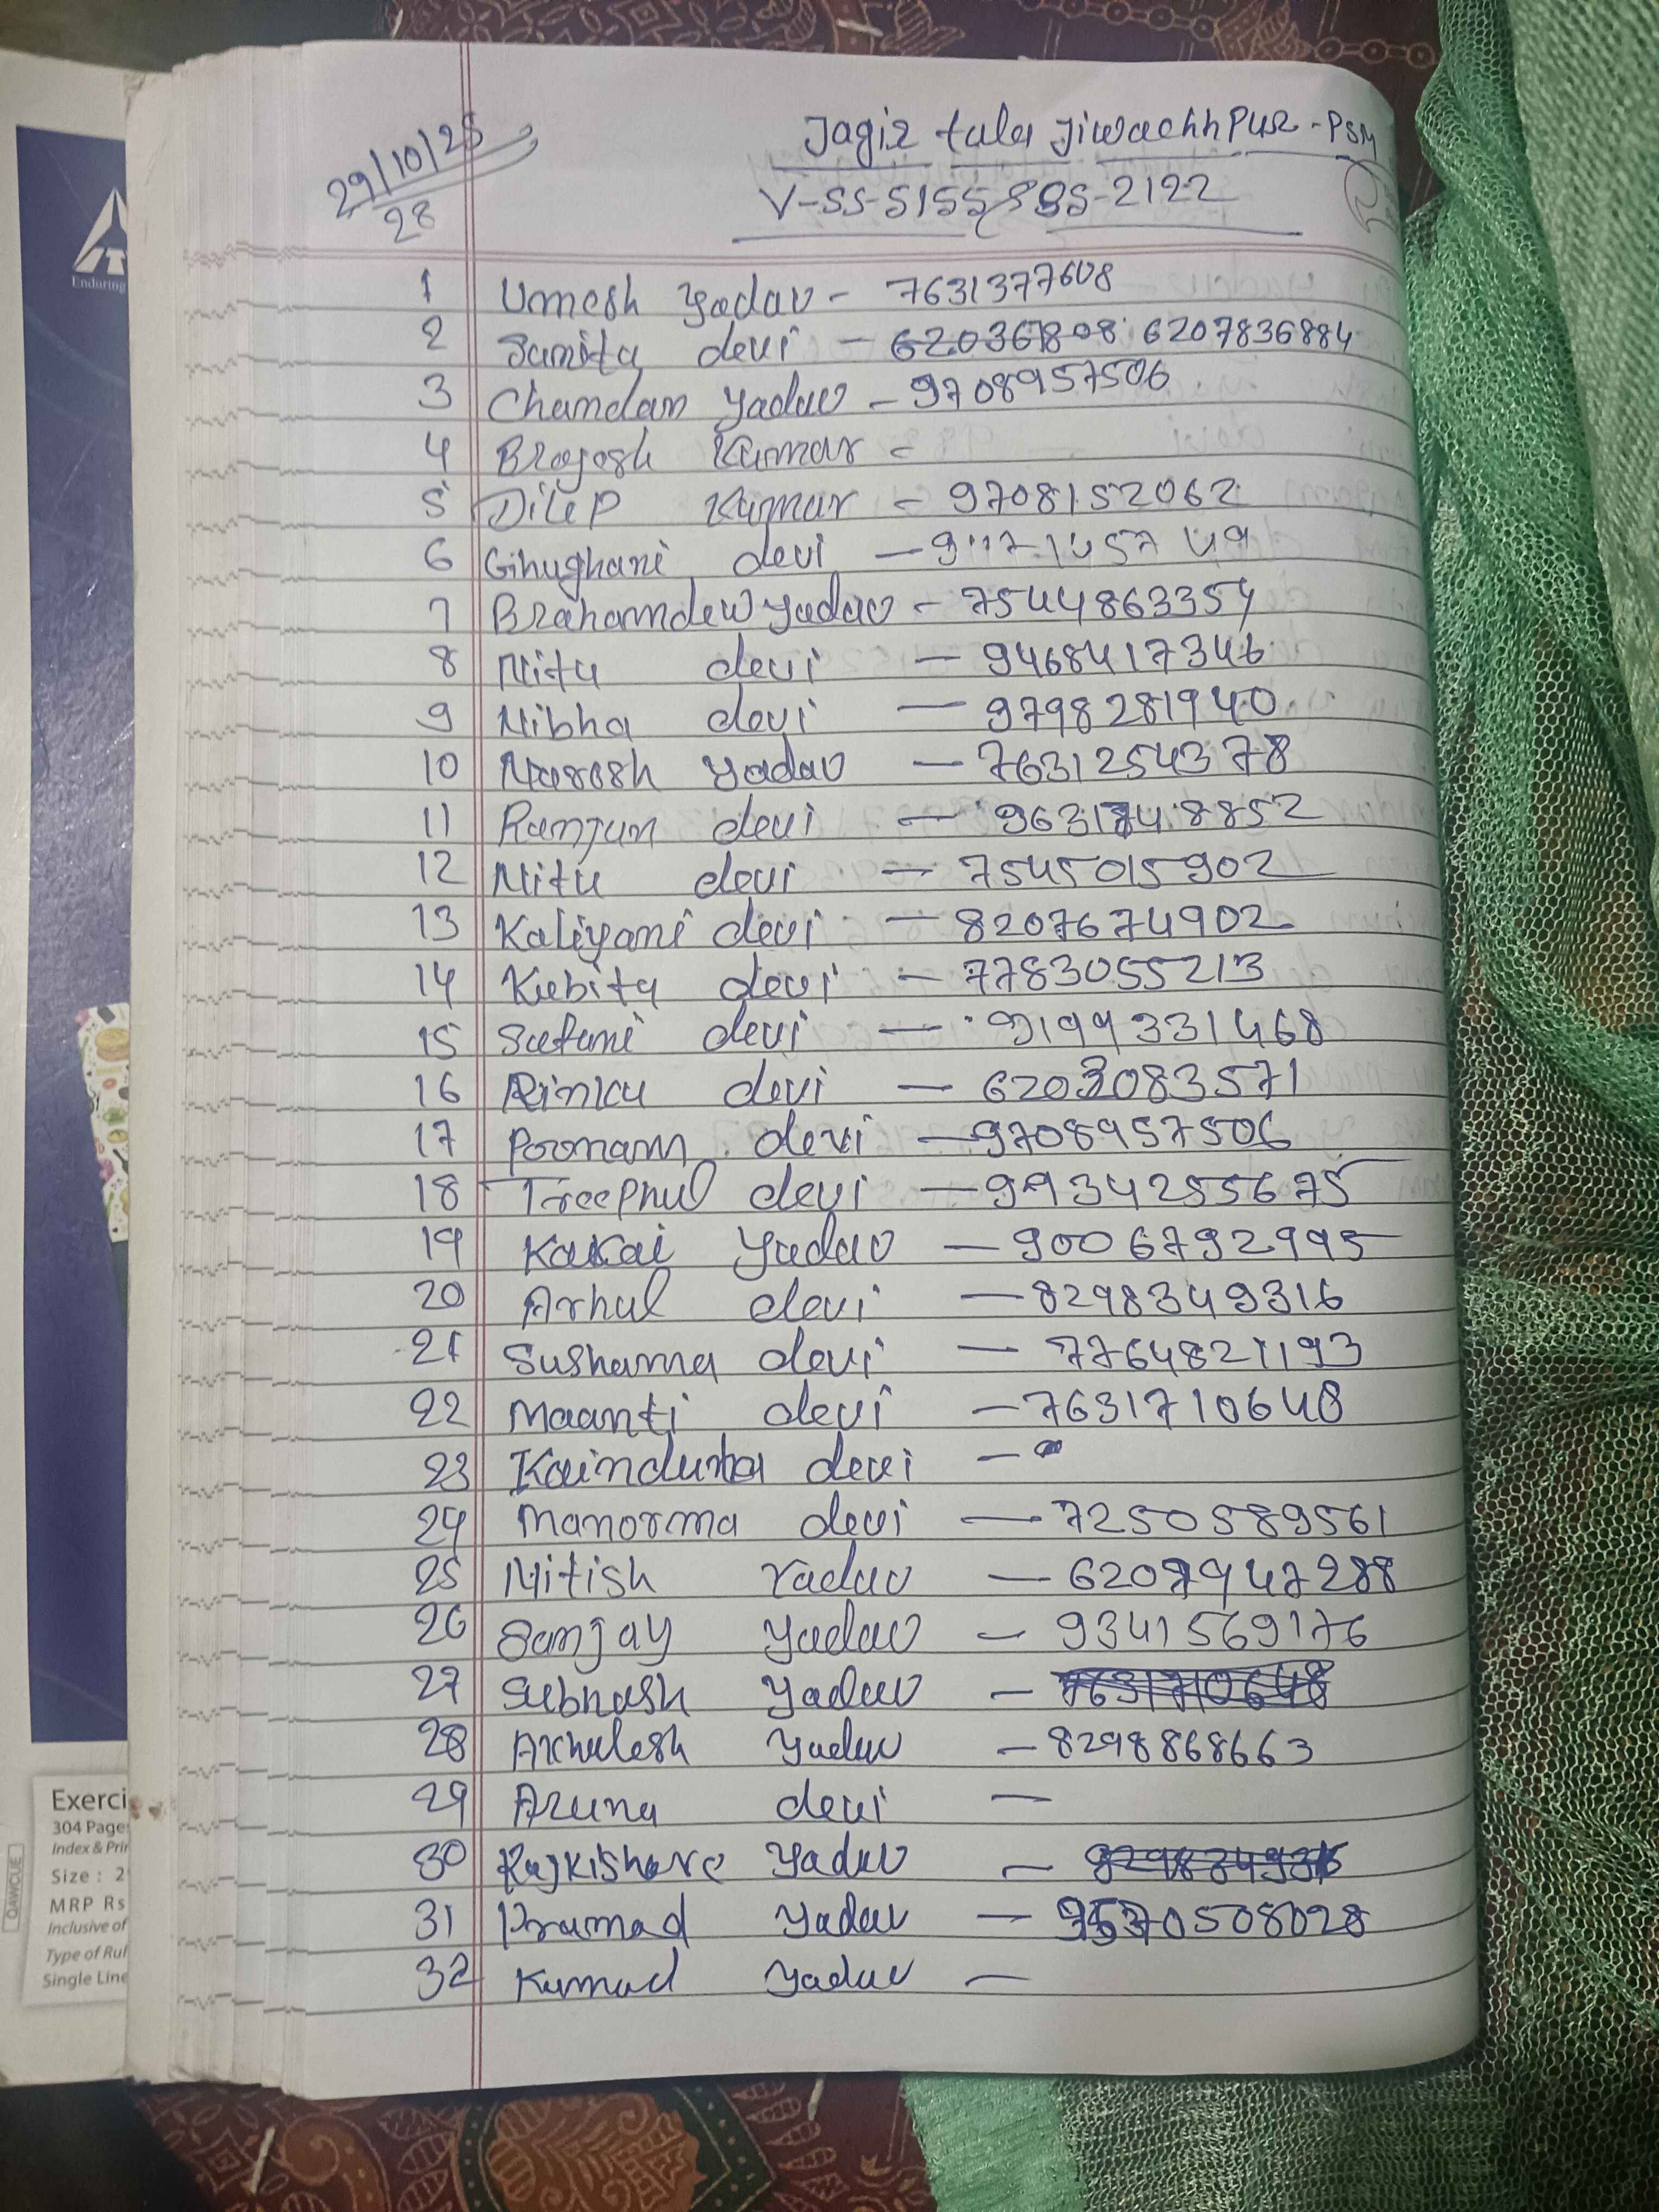 29/10/25
28
Jagir tola Jiwachhpur - PSM
V-SS-5155
SBS-2122
1 Umesh Yadav - 7631377608
2 Sunita devi - 6207836884
3 Chandan Yadav - 9708957506
4 Brajesh Kumar -
5 Dilep Kumar - 9708152062
6 devi -
7 Brahamdew Yadav - 7544863354
8 Nitu devi - 9468417346
9 Nibha devi - 9798281940
10 Naresh Yadav - 7631254378
11 Ranjun devi -
12 Nitu devi - 7545015902
13 Kaliyani devi - 8207674902
14 Kabita devi - 7783055213
15 devi - 9199331468
16 Rinku devi - 6203083571
17 Poonam devi - 9708957506
18 Treephul devi - 9934255675
19 Yadav - 9006792995
20 Arhul devi - 8298349316
21 Sushama devi - 7764821193
22 Maanti devi - 7631710648
23 devi -
24 Manorma devi - 7250589561
25 Nitish Yadav - 6207947288
26 Sanjay Yadav - 9341569176
27 Subhash Yadav - 7631710648
28 Akhilesh Yadav - 8298868663
29 Aruna devi -
30 Rajkishore Yadav - 8298349316
31 Pramod Yadav -
32 Kumud Yadav -
Enduring
Exerci
304 Page
Index & Prin
Size : 2
MRP Rs
Inclusive of
Type of Rul
Single Line